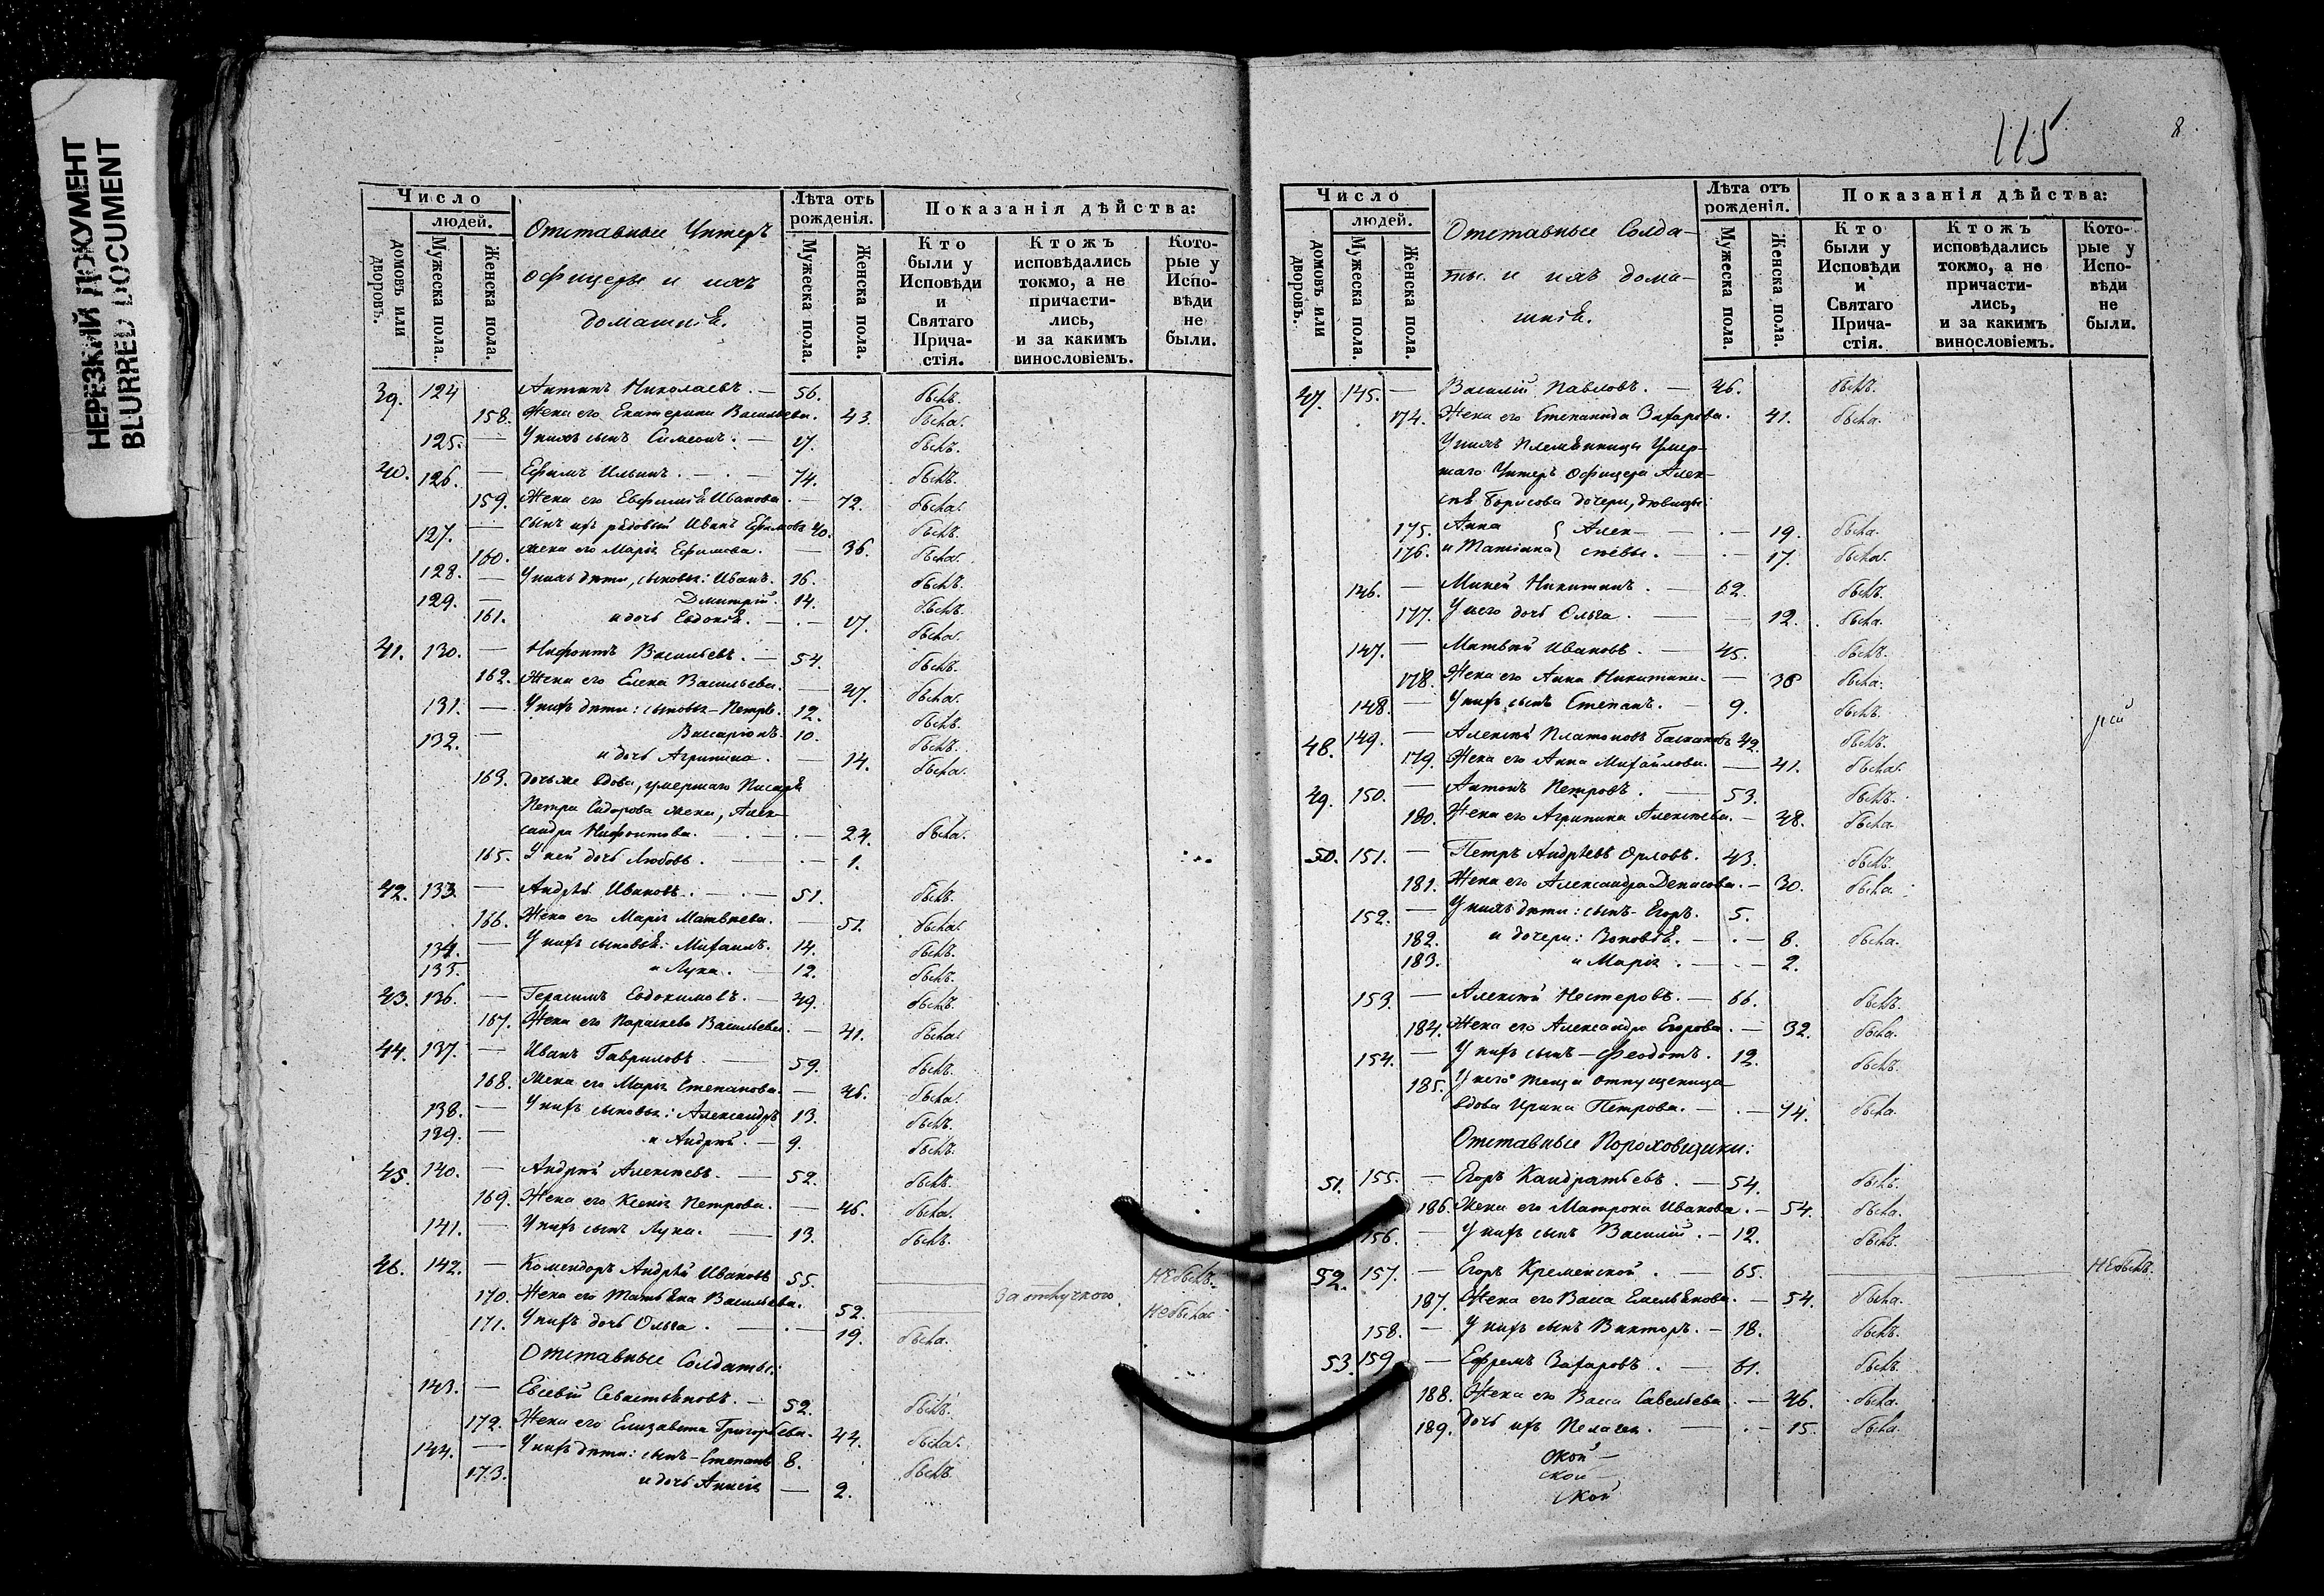 НЕРЕЗКИЙ ДОКУМЕНТ
BLURRED DOCUMENT
Число
людей.
домовъ или дворовъ.
Мужеска пола.
Женска пола.
Отставные Унтеръ
офицеры и ихъ
домашніе.
Лѣта отъ рожденія.
Мужеска пола.
Женска пола.
Показанія дѣйства:
Кто были у Исповѣди и Святаго Причастія.
Ктожъ исповѣдались токмо, а не причастились, и за какимъ винословіемъ.
Которые у Исповѣди не были.
39. 124 Антипъ Николаевъ. — 56. былъ.
158. Жена его Екатерина Васильева. 43. была.
125. — У нихъ сынъ Симеонъ. — 17. былъ.
40. 126. — Ефимъ Ильинъ. — 74. былъ.
159. Жена его Евфимія Иванова. — 72. была.
127. — сынъ ихъ рядовый Иванъ Ефимовъ 40. былъ.
160. жена его Марія Ефимова. — 36. была.
128. — У нихъ дѣти, сыновья: Иванъ. 16. былъ.
129. — Дмитрій. 14. былъ.
161. и дочь Евдокія. — 17. была.
41. 130. — Нифонтъ Васильевъ. — 54. былъ.
162. Жена его Елена Васильева. — 47. была.
131. — У нихъ дѣти: сыновья — Петръ. 12. былъ.
132. — Виссаріонъ. 10. былъ.
и дочь Агрипина. — 14. была.
163. дочь же вдова, умершаго Писаря
Петра Сидорова жена, Алек-
сандра Нифонтова. — 24. была.
165. У ней дочь Любовь. — 1.
42. 133. — Андрей Ивановъ. — 51. былъ.
166. Жена его Марія Матвѣева. — 51. была.
134. — У нихъ сыновья: Михаилъ. 14. былъ.
135. и Лука. — 12. былъ.
43. 136. — Герасимъ Евдокимовъ. — 49. былъ.
167. Жена его Параскева Васильева. — 41. была.
44. 137. — Иванъ Гавриловъ. — 59. былъ.
168. Жена его Марія Степанова. — 46. была.
138. — У нихъ сыновья: Александръ 13. былъ.
139. — и Андрей. — 9. былъ.
45. 140. — Андрей Алексѣевъ. — 52. былъ.
169. Жена его Ксенія Петрова. — 46. была.
141. — У нихъ сынъ Лука. — 13. былъ.
46. 142. — Комендоръ Андрей Ивановъ 55. — не былъ.
170. Жена его Татьяна Васильева. 52. — За отлучкою. не была.
171. У нихъ дочь Ольга. — 19. была.
Отставные Солдаты:
143. — Евсевій Севастьяновъ. — 52. былъ.
172. Жена его Елизавета Григорьева. 44. была.
144. — У нихъ дѣти: сынъ — Степанъ 8. былъ.
173. и дочь Анисія — 2.
115
8.
Число
людей.
домовъ или дворовъ.
Мужеска пола.
Женска пола.
Отставные Солда-
ты и ихъ дома-
шніе.
Лѣта отъ рожденія.
Мужеска пола.
Женска пола.
Показанія дѣйства:
Кто были у Исповѣди и Святаго Причастія.
Ктожъ исповѣдались токмо, а не причастились, и за какимъ винословіемъ.
Которые у Исповѣди не были.
47. 145. — Василій Павловъ. — 46. былъ.
174. Жена его Степанида Захарова. 41. была.
У нихъ племянницы Умер-
шаго Унтеръ Офицера Алек-
сѣя Борисова дочери, дѣвицы:
175. Анна } Алек- — 19. была.
176. и Татіана } сѣевы. — 17. была.
146. — Миней Никитинъ. — 62. былъ.
177. У него дочь Ольга. — 12. была.
147. — Матвей Ивановъ. — 45. былъ.
178. Жена его Анна Никитина. — 38 была.
148. — У нихъ сынъ Степанъ. — 9. былъ.
48. 149. — Алексѣй Платоновъ 42. былъ.
179. Жена его Анна Михайлова. — 41. была.
49. 150. — Антонъ Петровъ. — 53. былъ.
180. Жена его Агрипина Алексѣева. — 48. была.
50. 151. — Петръ Андрѣевъ Орловъ. 43. былъ.
181. Жена его Александра Денисова. — 30. была.
152. — У нихъ дѣти: сынъ — Егоръ. 5.
182. и дочери: Зиновія. — 8. была.
183. и Марія. — 2.
153. — Алексѣй Нестеровъ. — 66. былъ.
184. Жена его Александра Егорова. — 32. была.
154. — У нихъ сынъ — Феодотъ. 12. былъ.
185. У него теща отпущеница
вдова Ирина Петрова. — 74. была.
Отставные Пороховщики:
51. 155. — Егоръ Кандратьевъ. — 54. былъ.
186. Жена его Матрона Иванова. — 54. была.
156. — У нихъ сынъ Василій. — 12. былъ.
52. 157. — Егоръ Кременской. — 65. — не былъ.
187. Жена его Васса Емельянова. — 54. была.
158. — У нихъ сынъ Викторъ. — 18. былъ.
53. 159 — Ефремъ Захаровъ. — 61. былъ.
188. Жена его Васса Савельева. — 46. была.
189. Дочь ихъ Пелагея. — 15. была.